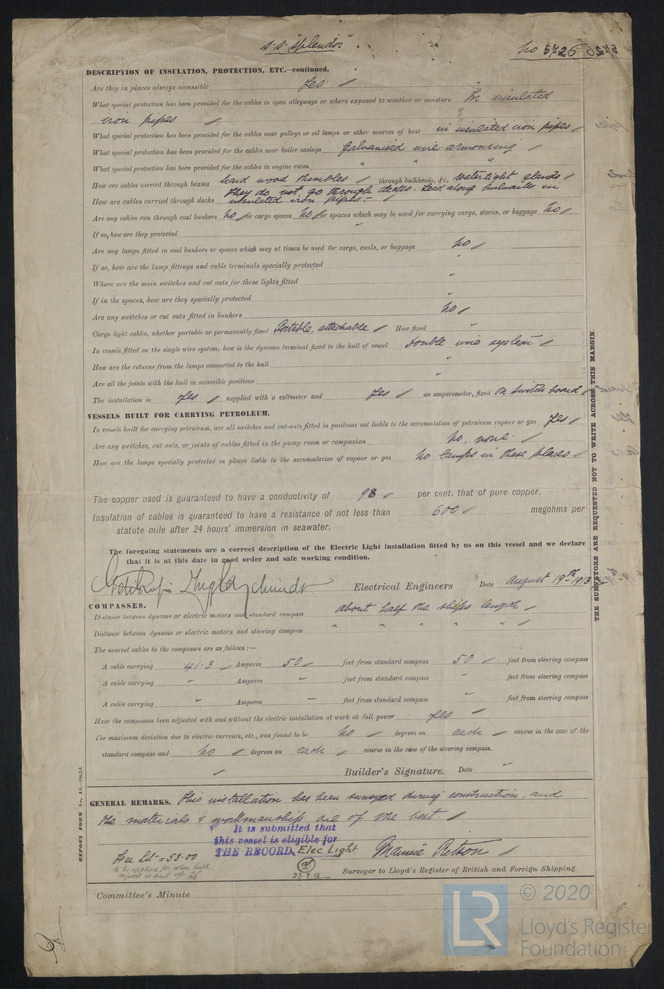 s.s. "Splendor"
No 5726
DESCRIPTION OF INSULATION, PROTECTION, ETC.—continued.
Are they in places always accessible yes
What special protection has been provided for the cables in open alleyways or where exposed to weather or moisture In insulated
iron pipes
What special protection has been provided for the cables near galleys or oil lamps or other sources of heat in insulated iron pipes
What special protection has been provided for the cables near boiler casings Galvanised wire armouring
What special protection has been provided for the cables in engine room " "
How are cables carried through beams hard wood thimbles through bulkheads, &c. Watertight glands
How are cables carried through decks they do not go through decks. Lead along bulwarks in
insulated iron pipes
Are any cables run through coal bunkers No or cargo spaces No or spaces which may be used for carrying cargo, stores, or baggage No
If so, how are they protected "
Are any lamps fitted in coal bunkers or spaces which may at times be used for cargo, coals, or baggage No
If so, how are the lamp fittings and cable terminals specially protected "
Where are the main switches and cut outs for these lights fitted "
If in the spaces, how are they specially protected "
Are any switches or cut outs fitted in bunkers No
Cargo light cables, whether portable or permanently fixed Portable, attachable How fixed "
In vessels fitted on the single wire system, how is the dynamo terminal fixed to the hull of vessel Double wire system
How are the returns from the lamps connected to the hull "
Are all the joints with the hull in accessible positions "
The installation is yes supplied with a voltmeter and yes an amperemeter, fixed On switch board
VESSELS BUILT FOR CARRYING PETROLEUM.
In vessels built for carrying petroleum, are all switches and cut-outs fitted in positions not liable to the accumulation of petroleum vapour or gas yes
Are any switches, cut outs, or joints of cables fitted in the pump room or companion No, none
How are the lamps specially protected in places liable to the accumulation of vapour or gas No lamps in these places
The copper used is guaranteed to have a conductivity of 98 per cent. that of pure copper.
Insulation of cables is guaranteed to have a resistance of not less than 600 megohms per
statute mile after 24 hours' immersion in seawater.
The foregoing statements are a correct description of the Electric Light installation fitted by us on this vessel and we declare
that it is at this date in good order and safe working condition.
Electrical Engineers Date August 19th 1913
COMPASSES.
Distance between dynamo or electric motors and standard compass about half the ships length
Distance between dynamo or electric motors and steering compass " " " " "
The nearest cables to the compasses are as follows:—
A cable carrying 41.3 Amperes 50 feet from standard compass 50 feet from steering compass
A cable carrying " Amperes " feet from standard compass " feet from steering compass
A cable carrying " Amperes — feet from standard compass " feet from steering compass
Have the compasses been adjusted with and without the electric installation at work at full power yes
The maximum deviation due to electric currents, etc., was found to be No degrees on each course in the case of the
standard compass and No degrees on each course in the case of the steering compass.
Builder's Signature. Date "
GENERAL REMARKS. This installation has been surveyed during construction, and
the materials & workmanship are of the best
It is submitted that
this vessel is eligible for
THE RECORD. Elec. Light
Surveyor to Lloyd's Register of British and Foreign Shipping.
Committee's Minute
THE SURVEYORS ARE REQUESTED NOT TO WRITE ACROSS THIS MARGIN.
LR
© 2020
Lloyd's Register
Foundation